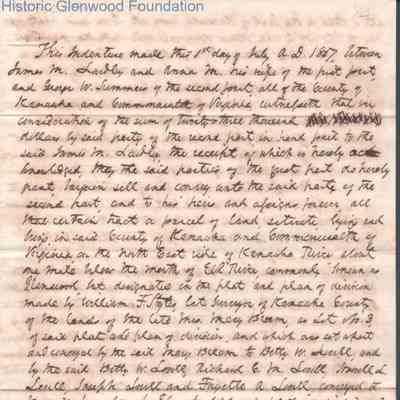 Historic Glenwood Foundation
This Indenture made this 1st day of July A.D. 1857, between
James M. Laidley and Anna M. his wife of the first part,
and George W. Summers of the second part, all of the County of
Kanawha and Commonwealth of Virginia witnesseth that in
consideration of the sum of twenty three thousand
dollars by said party of the second part in hand paid to the
said James M. Laidley the receipt of which is hereby ack-
knowledged, they the said parties of the first part do hereby
grant bargain sell and convey unto the said party of the
second part and to his heirs and assigns forever all
that certain tract or parcel of land situate lying and
being in said County of Kanawha and Commonwealth of
Virginia on the North East side of Kanawha River about
one mile below the mouth of Elk River commonly known as
Glenwood lot designated in the plat and plan of division
made by William F. late Surveyor of Kanawha County
of the lands of the late Mrs. Mary Bream, as Lot No. 3
of said plat and plan of division, and which was set apart
and conveyed by the said Mary Bream to Betty W. Lovell, and
by the said Betty W. Lovell, Richard C. M. Lovell,
Lovell, Joseph Lovell and Fayette A. Lovell, conveyed to